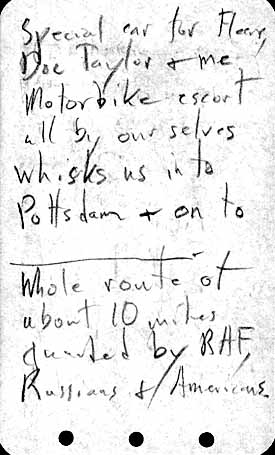 Special car for Fleery,
Doc Taylor + me.
Motorbike escort
all by our selves
whisks us in to
Pottsdam + on to
Whole route of
about 10 miles
guarded by RAF,
Russians & Americans.